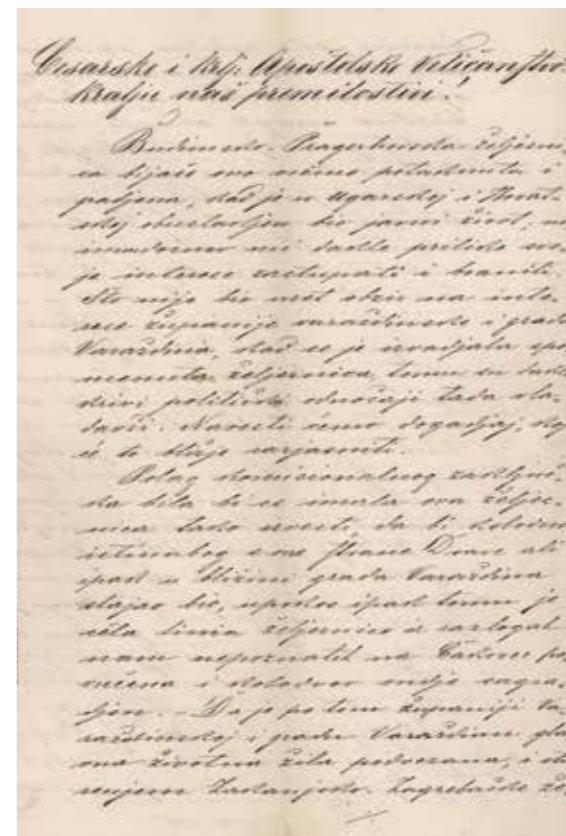 Cesarsko i krlj: Apoštolsko Veličanstvo
Kralju naš premilostivi!
Budimsko-Pragerhovska željezni-
ca bijaše ovo
padjena, kad je u Ugarskoj i Hrvat-
skoj obustavljen bio javni život, mi
imadosmo nit dakle prilike svo-
je interese zastupati i braniti.
Što nije bio uzet obzir na inte-
rese županije varaždinske i grada
Varaždina, kad se je izvadjala spo-
menuta željeznica, tomu su dakle
krivi politički odnošaji tada vla-
davši. Navesti ćemo dogadjaj, koj
će to bliže razjasniti.
Polag komisionalnog zaključ-
ka bila bi se imala ova željez-
nica tako izvesti, da bi kolodvor
s one strane Drave ali
ipak u blizini grada Varaždina
stajao bio, uprkos ipak tomu je
cěla linia željeznice iz razlogah
nam nepoznatih na Čakovec po-
vučena i kolodvor ondje sagra-
djen. – Da je po tom županiji va-
raždinskoj i gradu Varaždinu gla-
vna životna žila podvezana, i
Zakanjsko-Zagrebačke že-